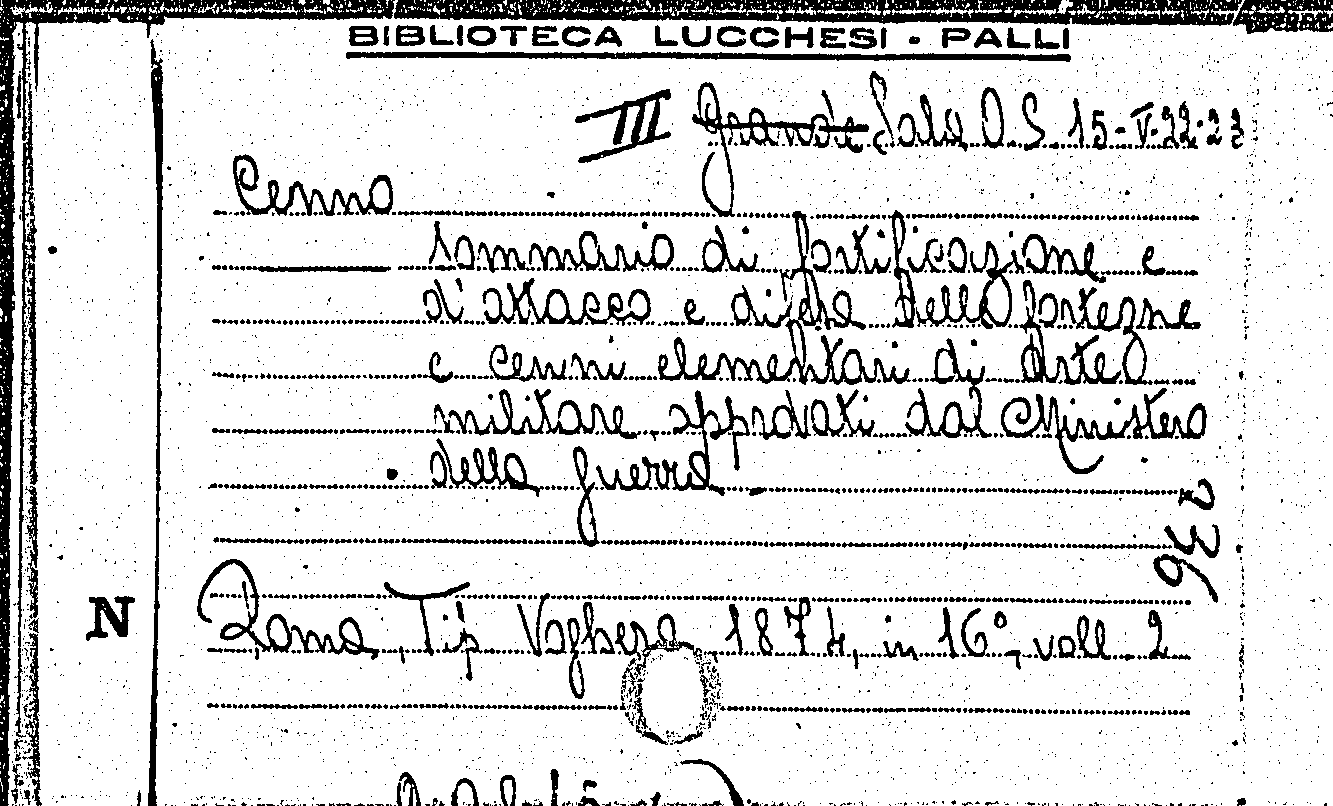 BIBLIOTECA LUCCHESI - PALLI
III Grande Sala O. S. 15-V-22-23
Cenno
sommario di fortificazione e
d'attacco e difesa delle fortezze
e cenni elementari di Arte
militare approvati dal Ministero
della guerra.
236
N
Roma, Tip. Voghera, 1874, in 16°, voll. 2